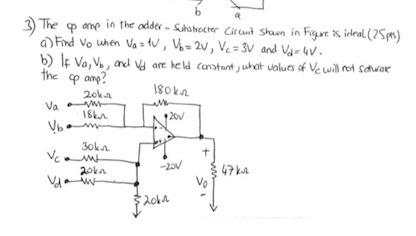 b a
3) The op amp in the adder-Substracter Circuit shown in Figure is ideal.(25pts)
a) Find Vo when Va = 1V, Vb = 2V, Vc = 3V and Vd = 4V.
b) If Va, Vb, and Vd are held constant, what values of Vc will not saturate
the op amp?
20kΩ 180kΩ
Va
18kΩ 20V
Vb
30kΩ
Vc
-20V +
20kΩ 47kΩ
Vd Vo
-
20kΩ